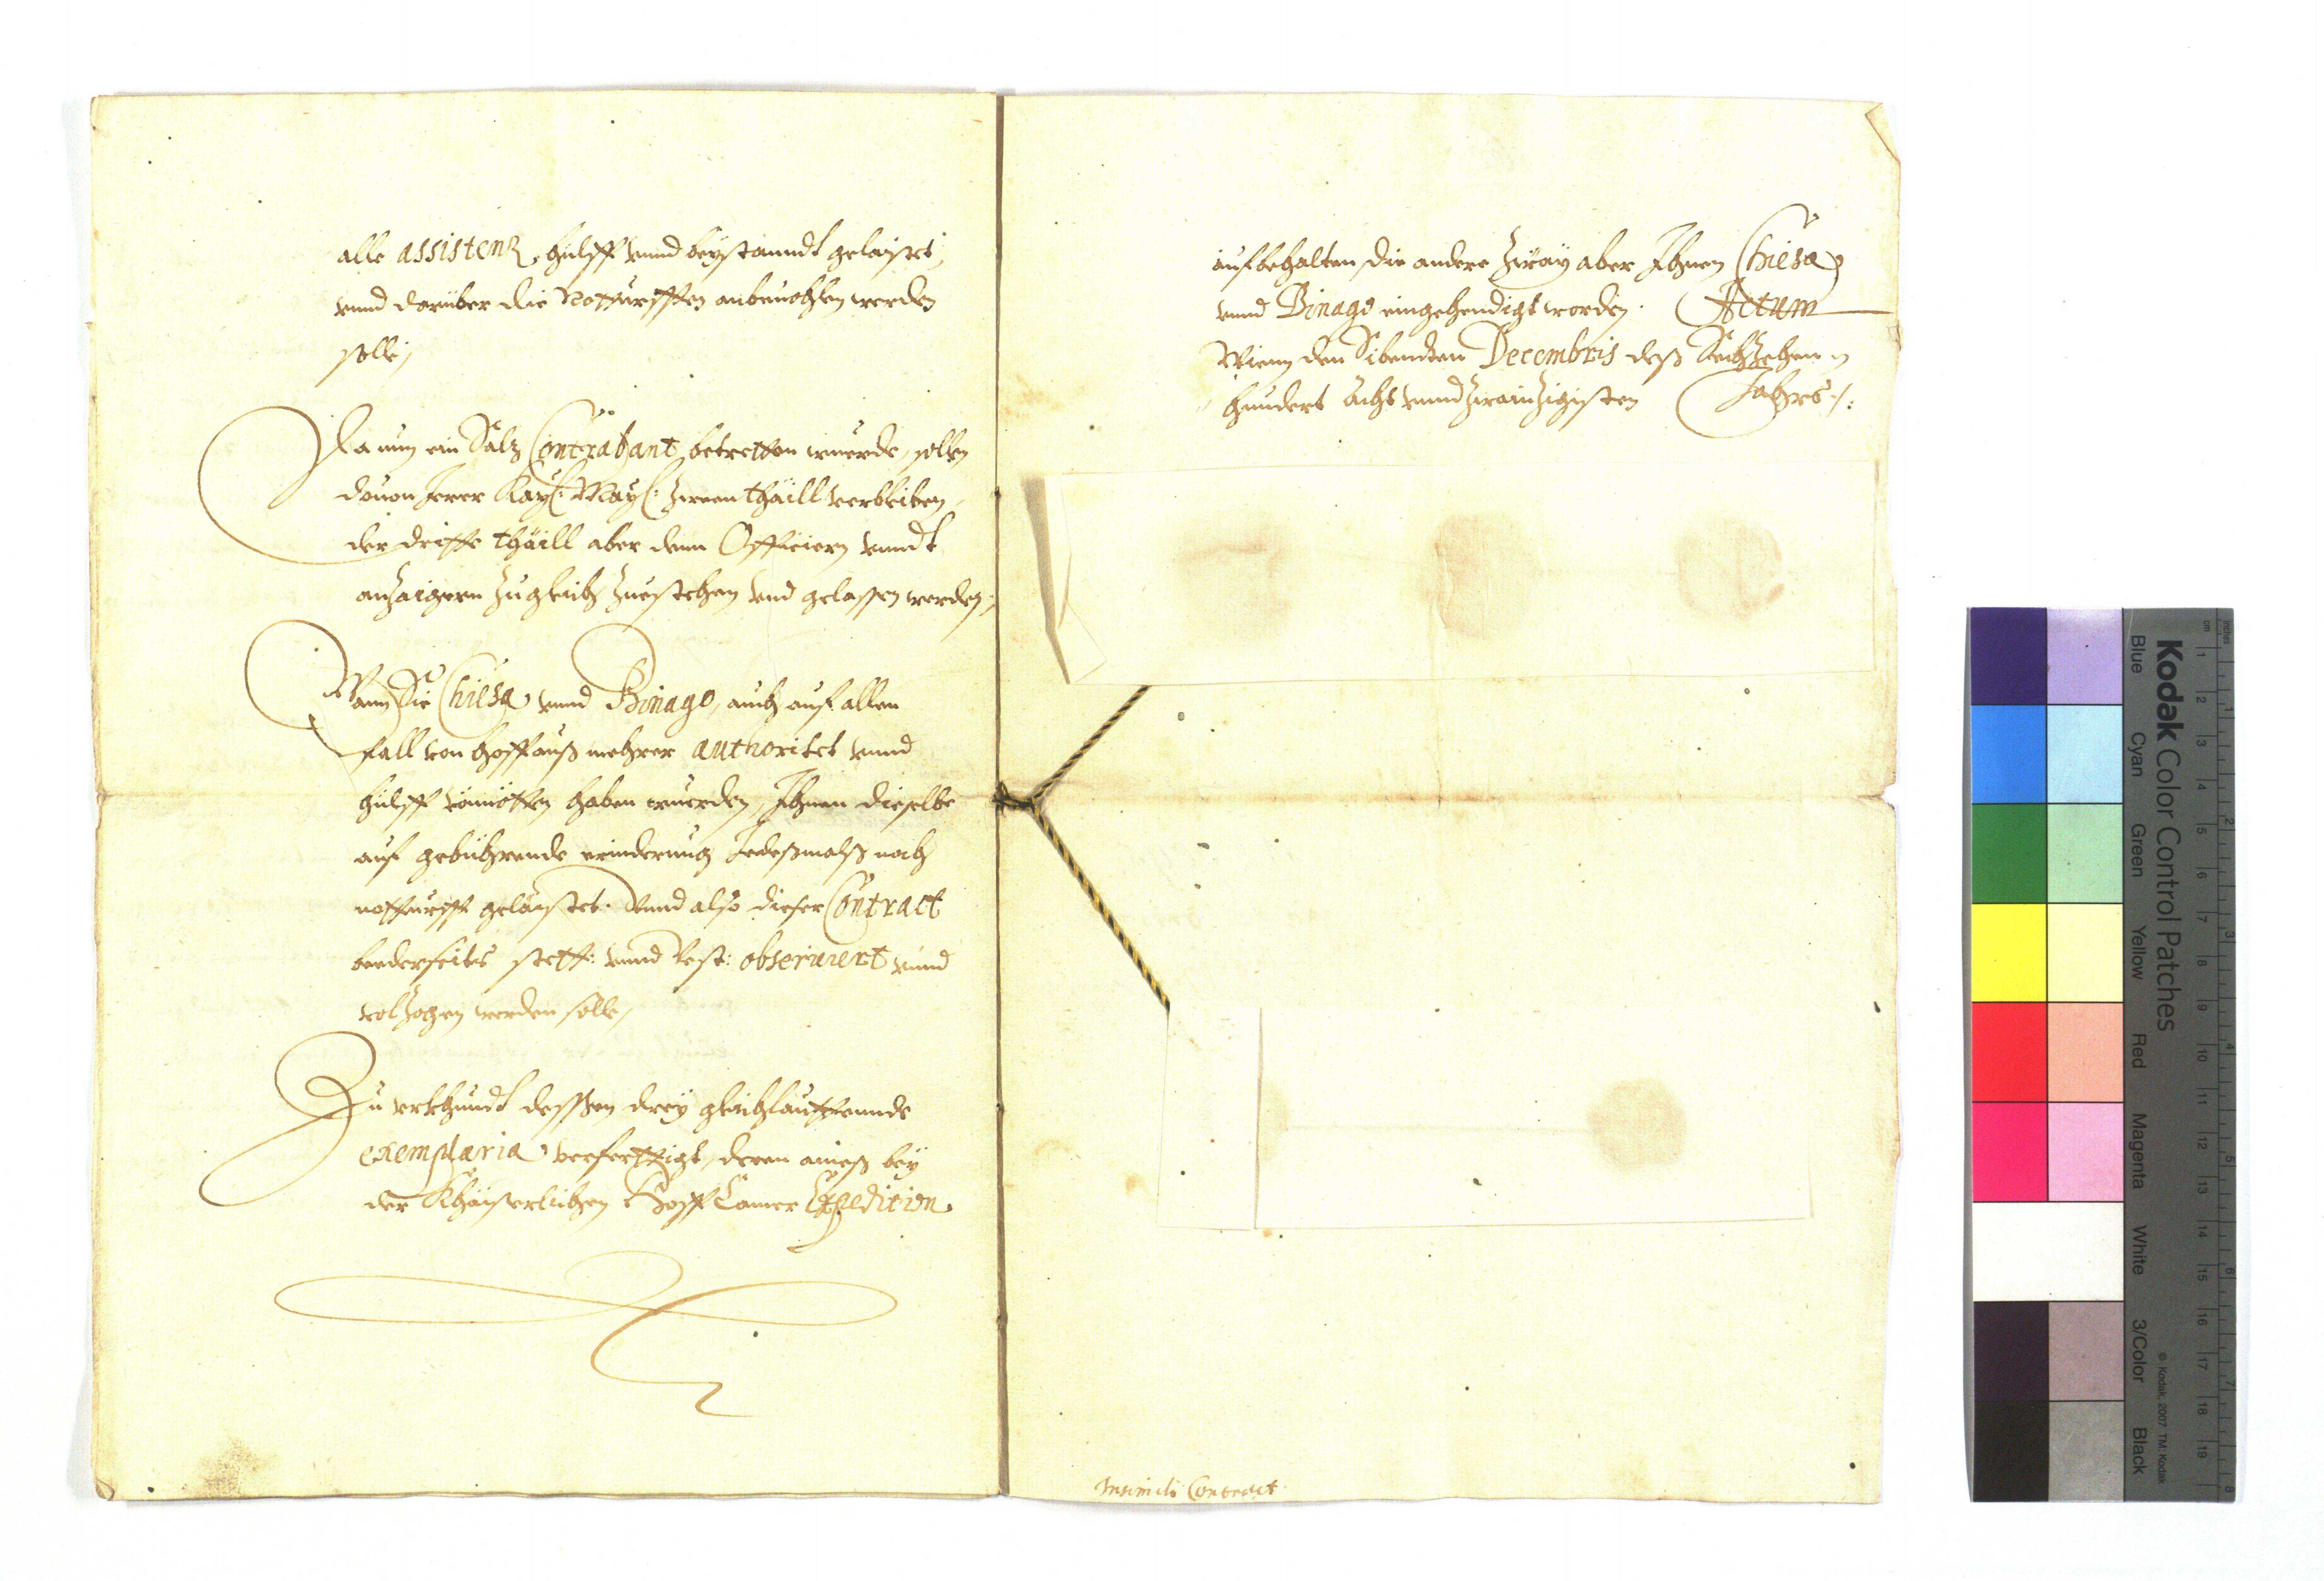 alle assistenz, hülff vnnd beystanndt gelaistet,
vnnd darüber die Notturfften anbeuohlen werden
solle,
Da nun ein Salz Contrabant betretten wuerde, sollen
dauon Irer Kay: May: zween thäill verbleiben,
der dritte thäill aber denn Officiern vnndt
anzaigern zugleich zuestehen vnd gelassen werden,
Wann Sie Chiesa vnnd Binago, auch auf allen
fall von hoff auß mehrer authoritet vnnd
hülff vonnötten haben wuerden, Ihnen dieselbe
auf gebührende erinderung Jedesmalß nach
notturfft gelaistet. Vnnd also dieser Contract
beederseits stett: vnnd vest: obseruiert vnnd
volzogen werden solle,
Zu vrkhundt dessen drey gleichlauttennde
exemplaria verferttigt, deren aines bey
der Khäiserlichen Hoff Camer Expedition
aufbehalten, die andere zway aber Ihnen Chiesa
vnnd Binago eingehendigt worden. Actum
Wienn den Sibendten Decembris deß Sechzehen
hundert Acht vnnd zwainzigisten Jahrs
Contract
Kodak Color Control Patches
Blue Cyan Green Yellow Red Magenta White 3/Color Black
© Kodak, 2007 TM: Kodak
inches
cm
1 2 3 4 5 6 7 8 9 10 11 12 13 14 15 16 17 18 19
1 2 3 4 5 6 7 8